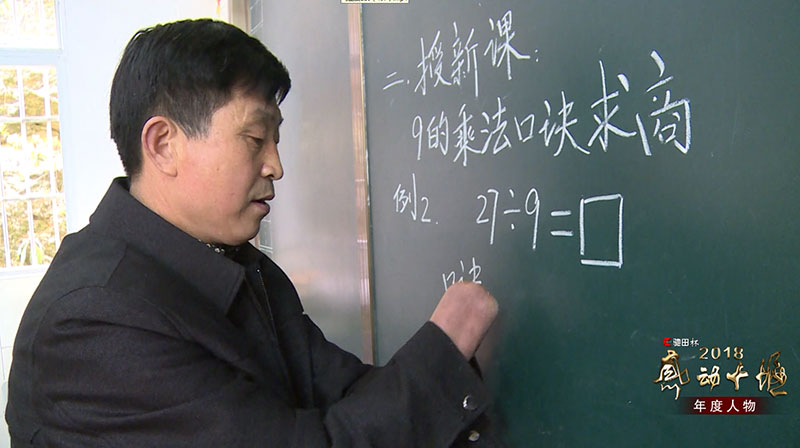 二.授新课:
9的乘法口诀求商
例2. 27÷9=□
口诀
驰田杯
2018
感动十堰
年度人物